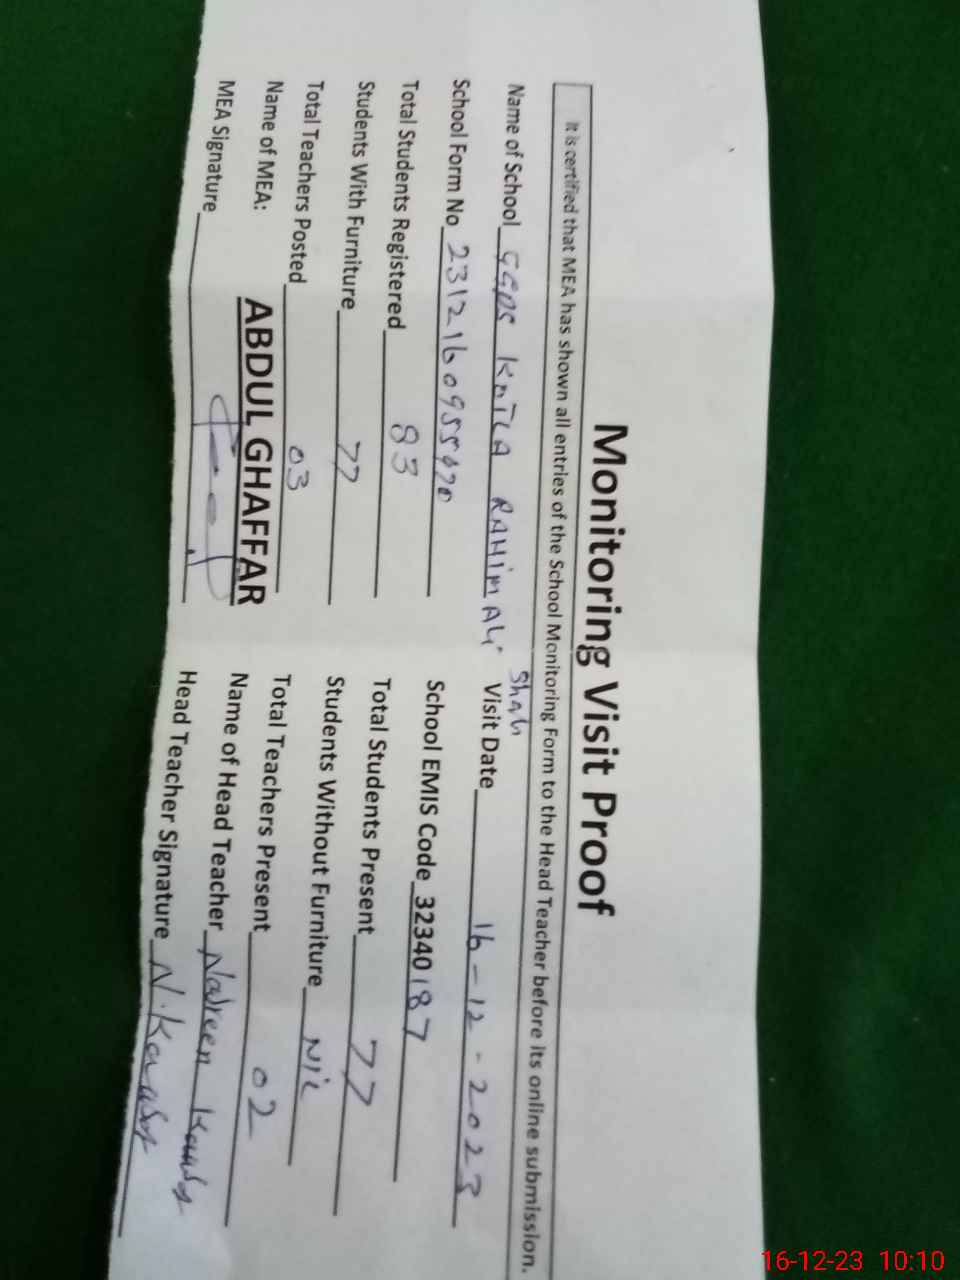 Monitoring Visit Proof
It is certified that MEA has shown all entries of the School Monitoring Form to the Head Teacher before its online submission.
Name of School GGPS KOTLA RAHIM ALI Shah Visit Date 16-12-2023
School Form No 2312160955070 School EMIS Code 32340187
Total Students Registered 83 Total Students Present 77
Students With Furniture 77 Students Without Furniture NIL
Total Teachers Posted 03 Total Teachers Present 02
Name of MEA: ABDUL GHAFFAR Name of Head Teacher Nasreen Kausar
MEA Signature Head Teacher Signature N. Kausar
16-12-23 10:10